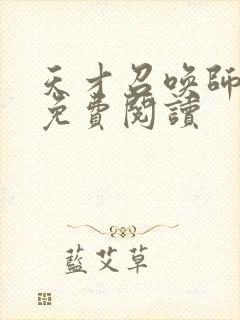 天才召喚師
免費閱讀
藍艾草